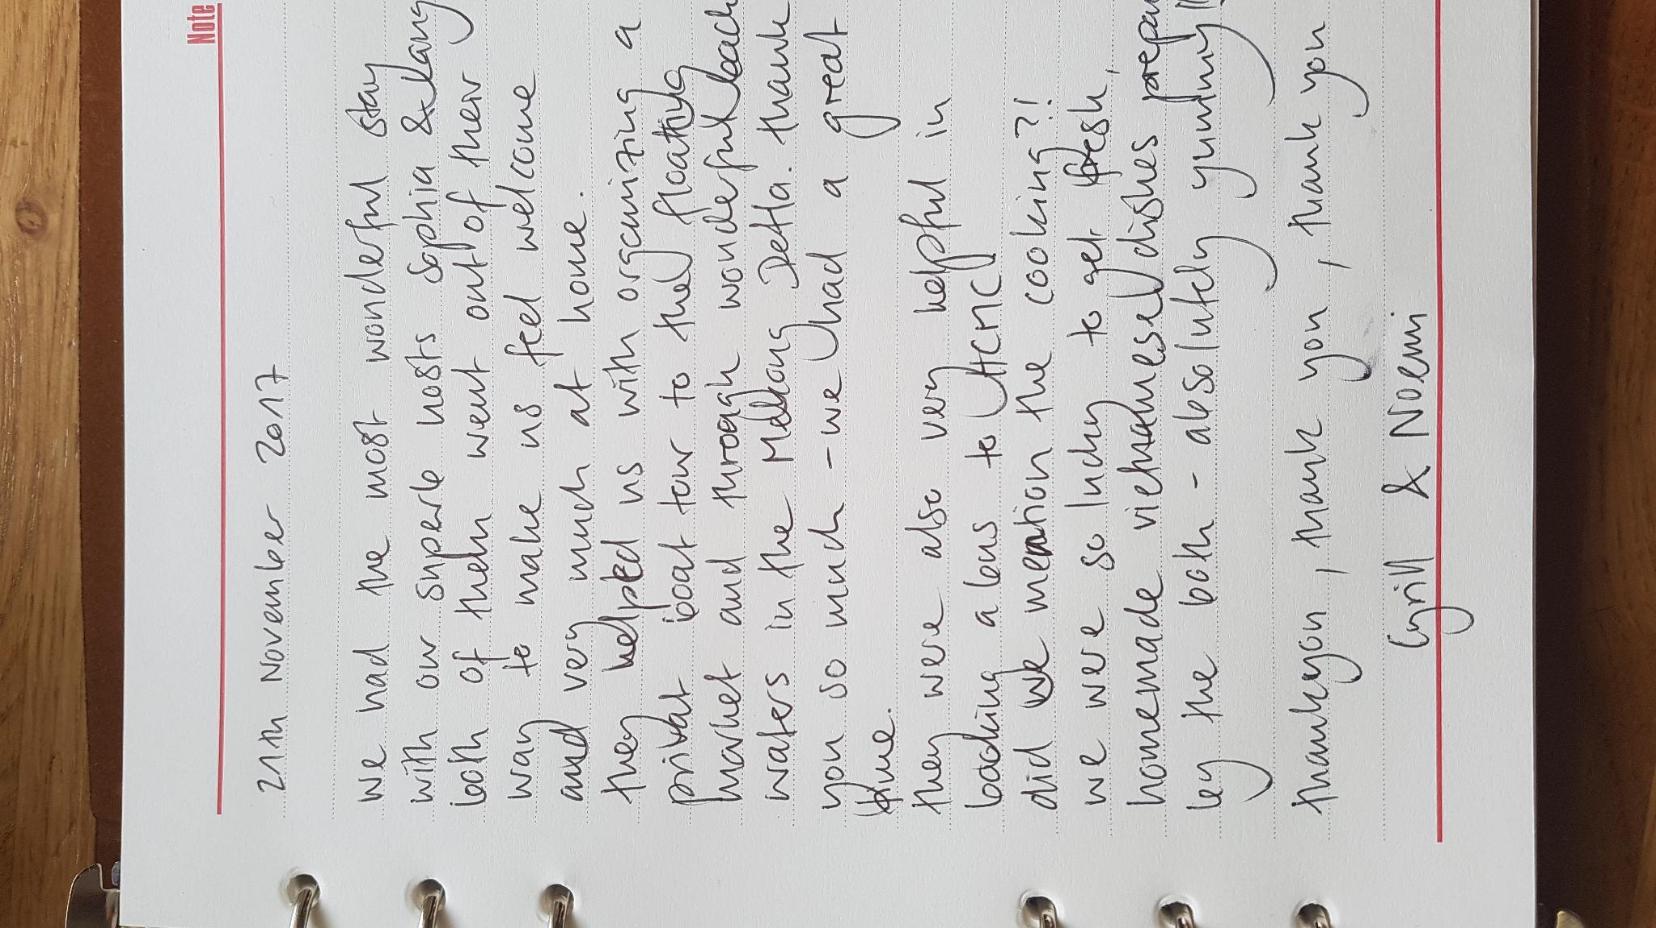 Note
21th November 2017
We had the most wonderful stay
with our superb hosts Sophia & Lang
both of them went out of their
way to make us feel welcome
and very much at home.
They helped us with organizing a
privat boat tour to the floating
market and through wonderful back
waters in the Mekong Delta. Thank
you so much - we had a great
time.
They were also very helpful in
booking a bus to HCMC
did we mention the cooking?!
we were so lucky to get fresh,
homemade vietnamese dishes prepar
by the both - absolutely yummy!!
Thankyou, thank you, thank you
Cyrill & Noemi